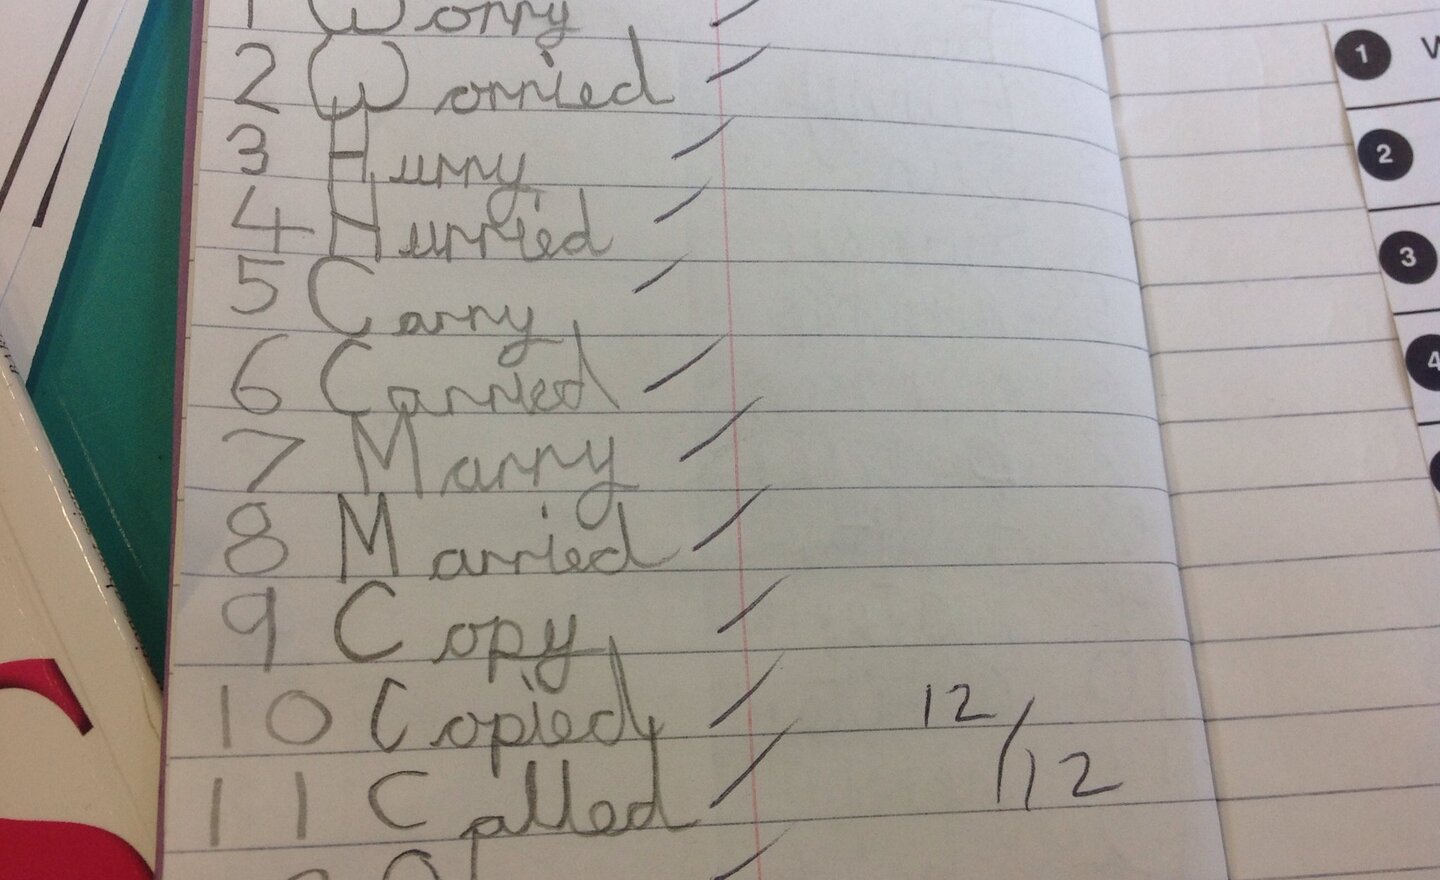 1 Worry
2 Worried
3 Hurry
4 Hurried
5 Carry
6 Carried
7 Marry
8 Married
9 Copy
10 Copied
11 Called
12/12
1
2
3
4